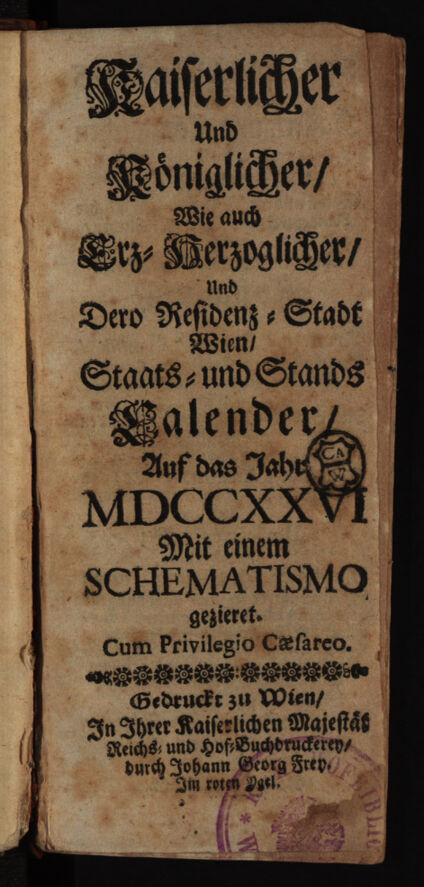 Kaiserlicher
Und
Königlicher/
Wie auch
Erz- Herzoglicher/
Und
Dero Residenz-Stadt
Wien/
Staats- und Stands
Calender/
Auf das Jahr
CA
W
MDCCXXVI
Mit einem
SCHEMATISMO
gezieret.
Cum Privilegio Cæsareo.
Gedruckt zu Wien/
In Ihrer Kaiserlichen Majestäs
Reichs- und Hof-Buchdruckerey/
durch Johann Georg Frey.
Im roten Ygel.